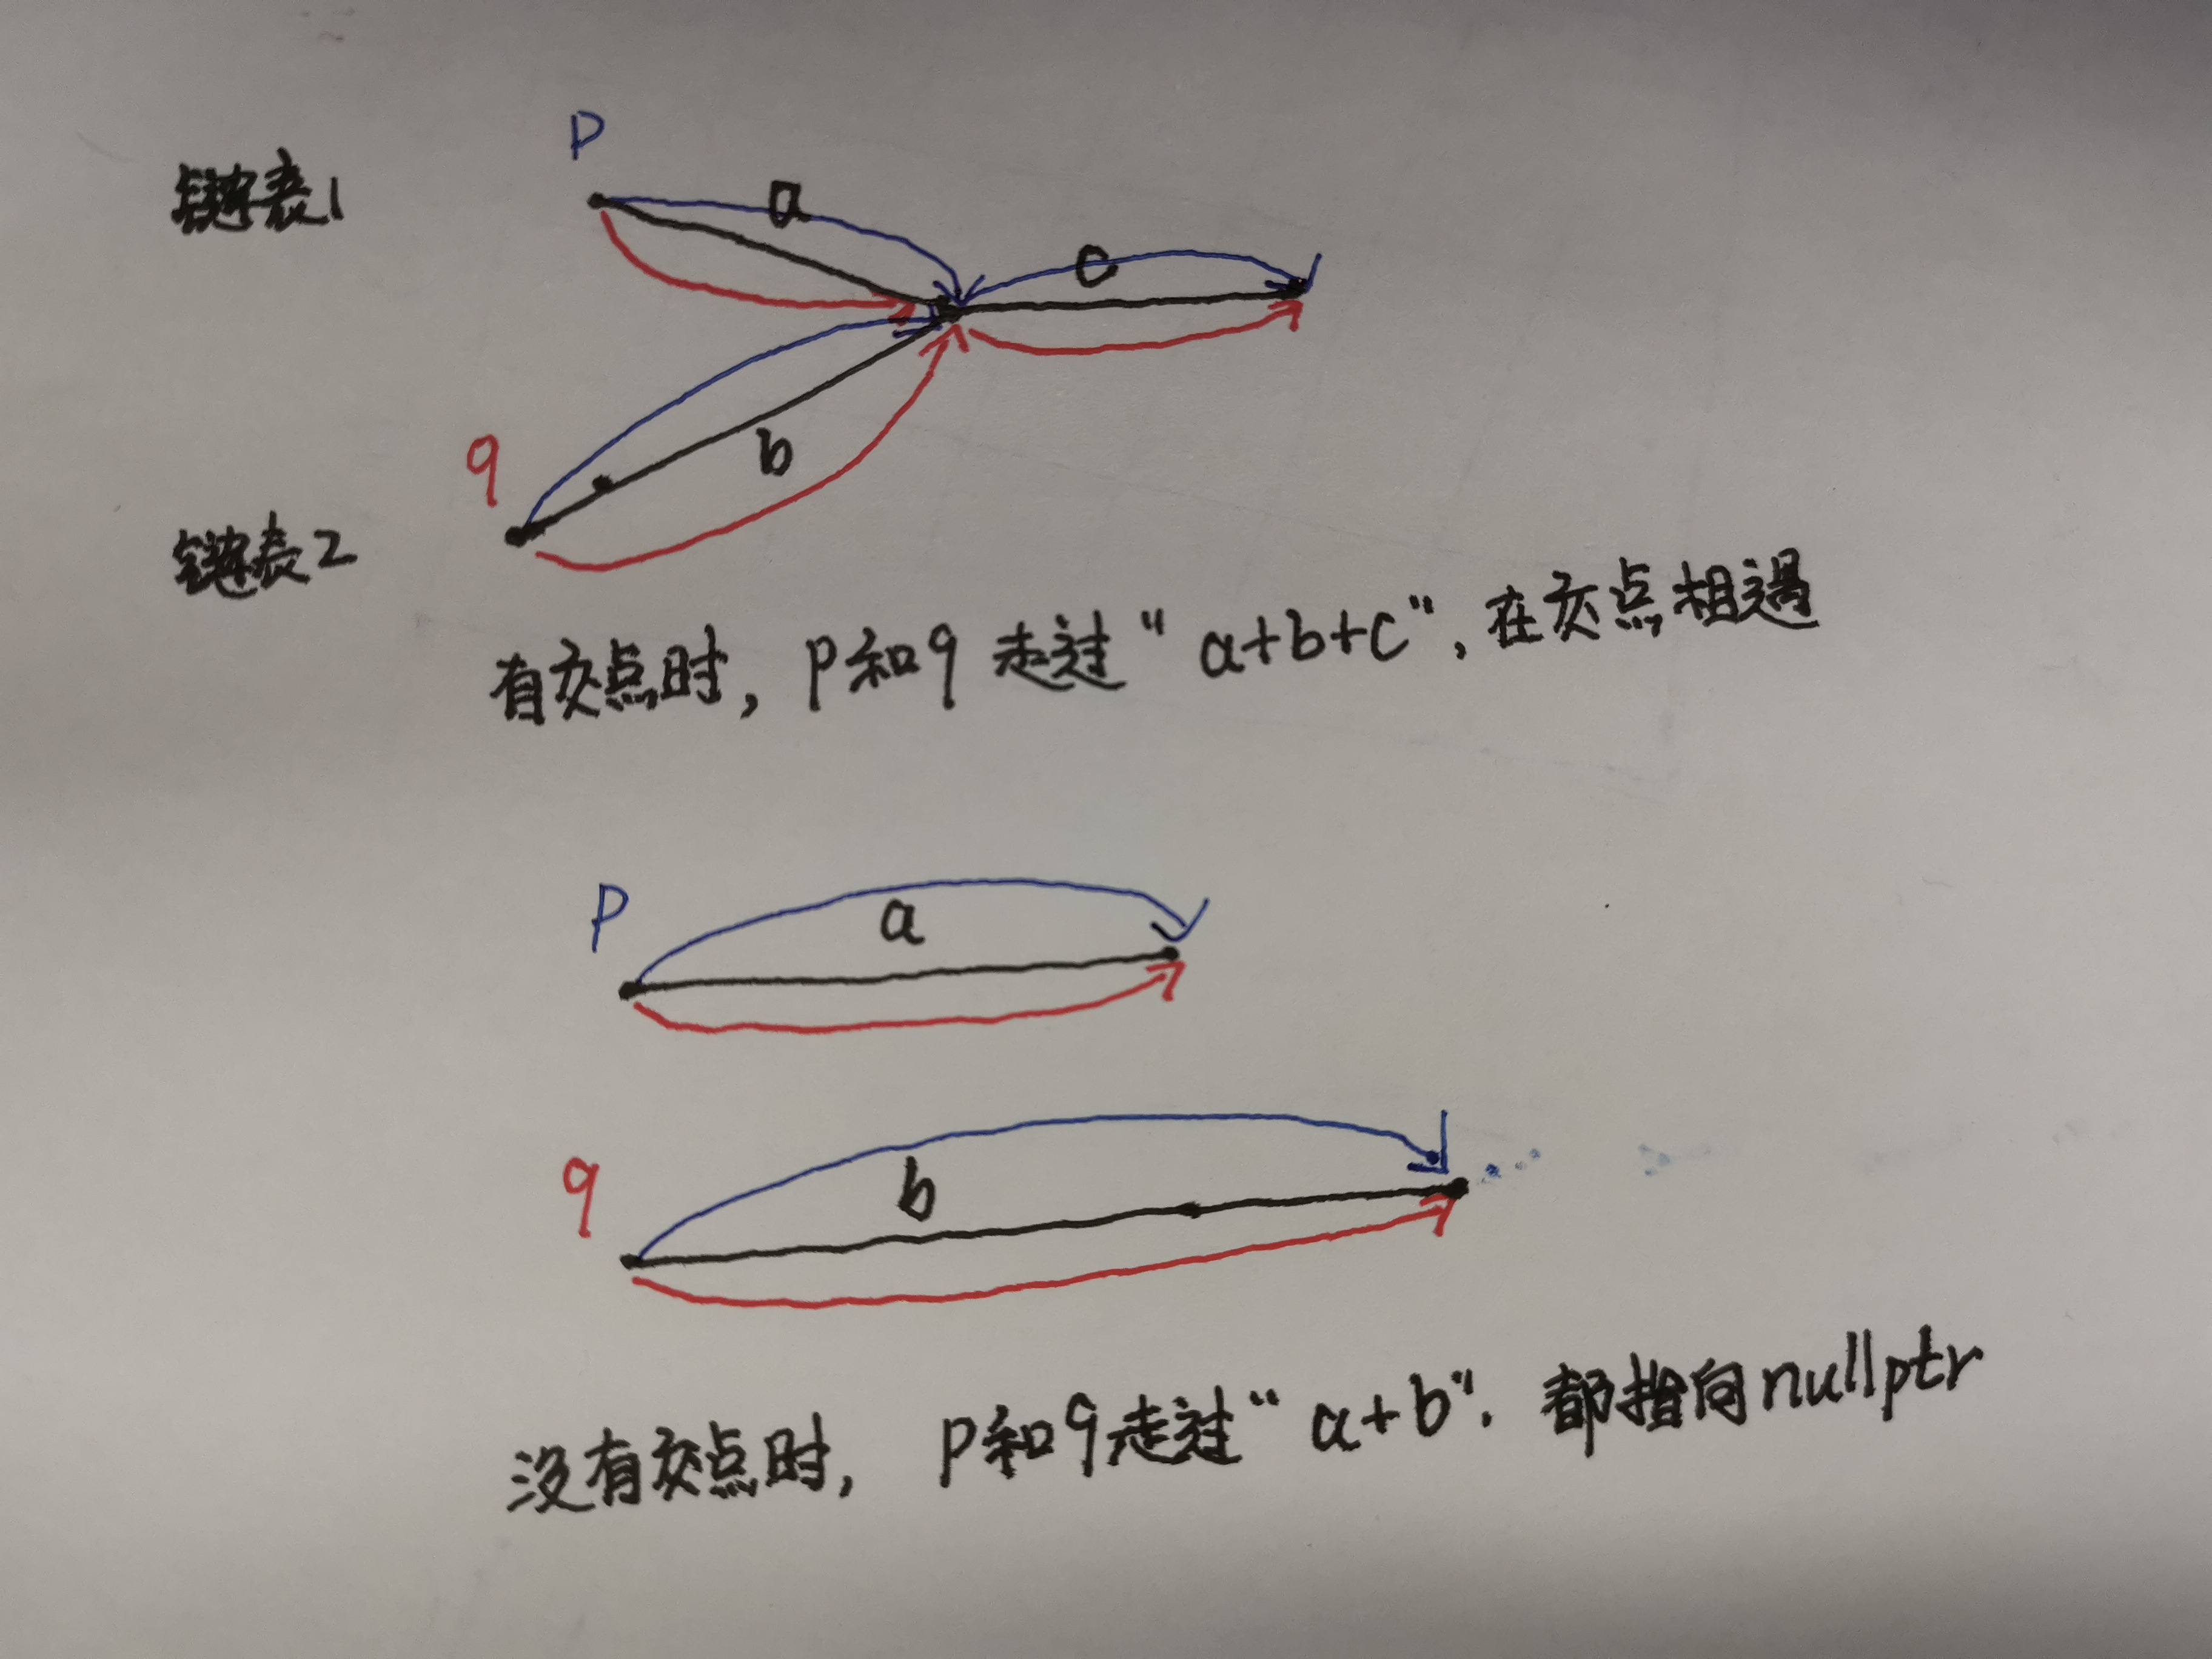 P
链表1
a
c
q
b
链表2
有交点时，p和q 走过“a+b+c”，在交点相遇
P
a
q
b
没有交点时，p和q走过“a+b”．都指向nullptr